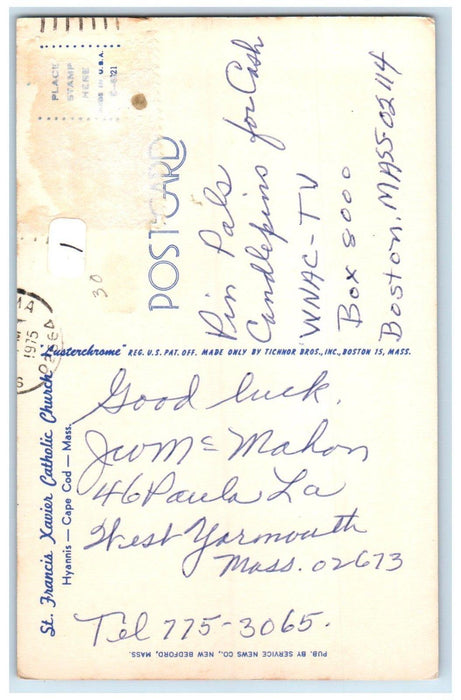 PLACE
STAMP
HERE
MADE IN U.S.A.
POSTCARD
1
30
MA
1975
Pin Pals
Candlepins for Cash
WNAC-TV
Box 8000
Boston, MASS 02114
"Lusterchrome" REG. U.S. PAT. OFF. MADE ONLY BY TICHNOR BROS., INC., BOSTON 15, MASS.
St. Francis Xavier Catholic Church
Hyannis — Cape Cod — Mass.
Good luck.
McMahon
46 Paula La
West Yarmouth
Mass. 02673
Tel 775-3065.
PUB. BY SERVICE NEWS CO., NEW BEDFORD, MASS.